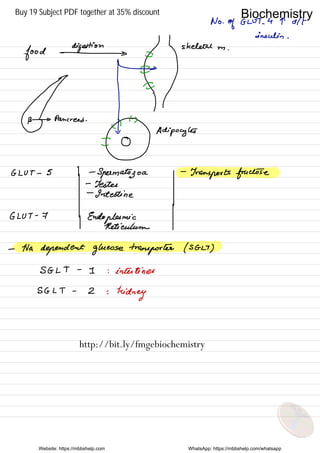 Buy 19 Subject PDF together at 35% discount
Biochemistry
No. of GLUT-4 ↑ d/t
insulin.
food
digestion
skeletal m.
β
Pancreas.
Adipocytes
GLUT-5
- Spermatozoa
- Testes
- Intestine
- Transports fructose
GLUT-7
Endoplasmic
Reticulum
- Na dependent glucose transporter (SGLT)
SGLT - 1 : intestines
SGLT - 2 : kidney
http://bit.ly/fmgebiochemistry
Website: https://mbbshelp.com
WhatsApp: https://mbbshelp.com/whatsapp